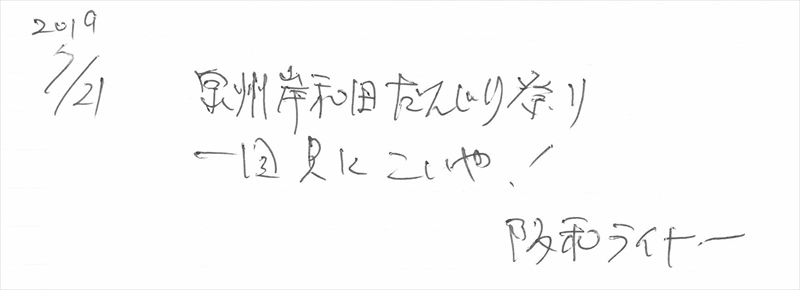 2019
7/21
泉州岸和田だんじり祭り
一回見にこいや!
阪和ライナー